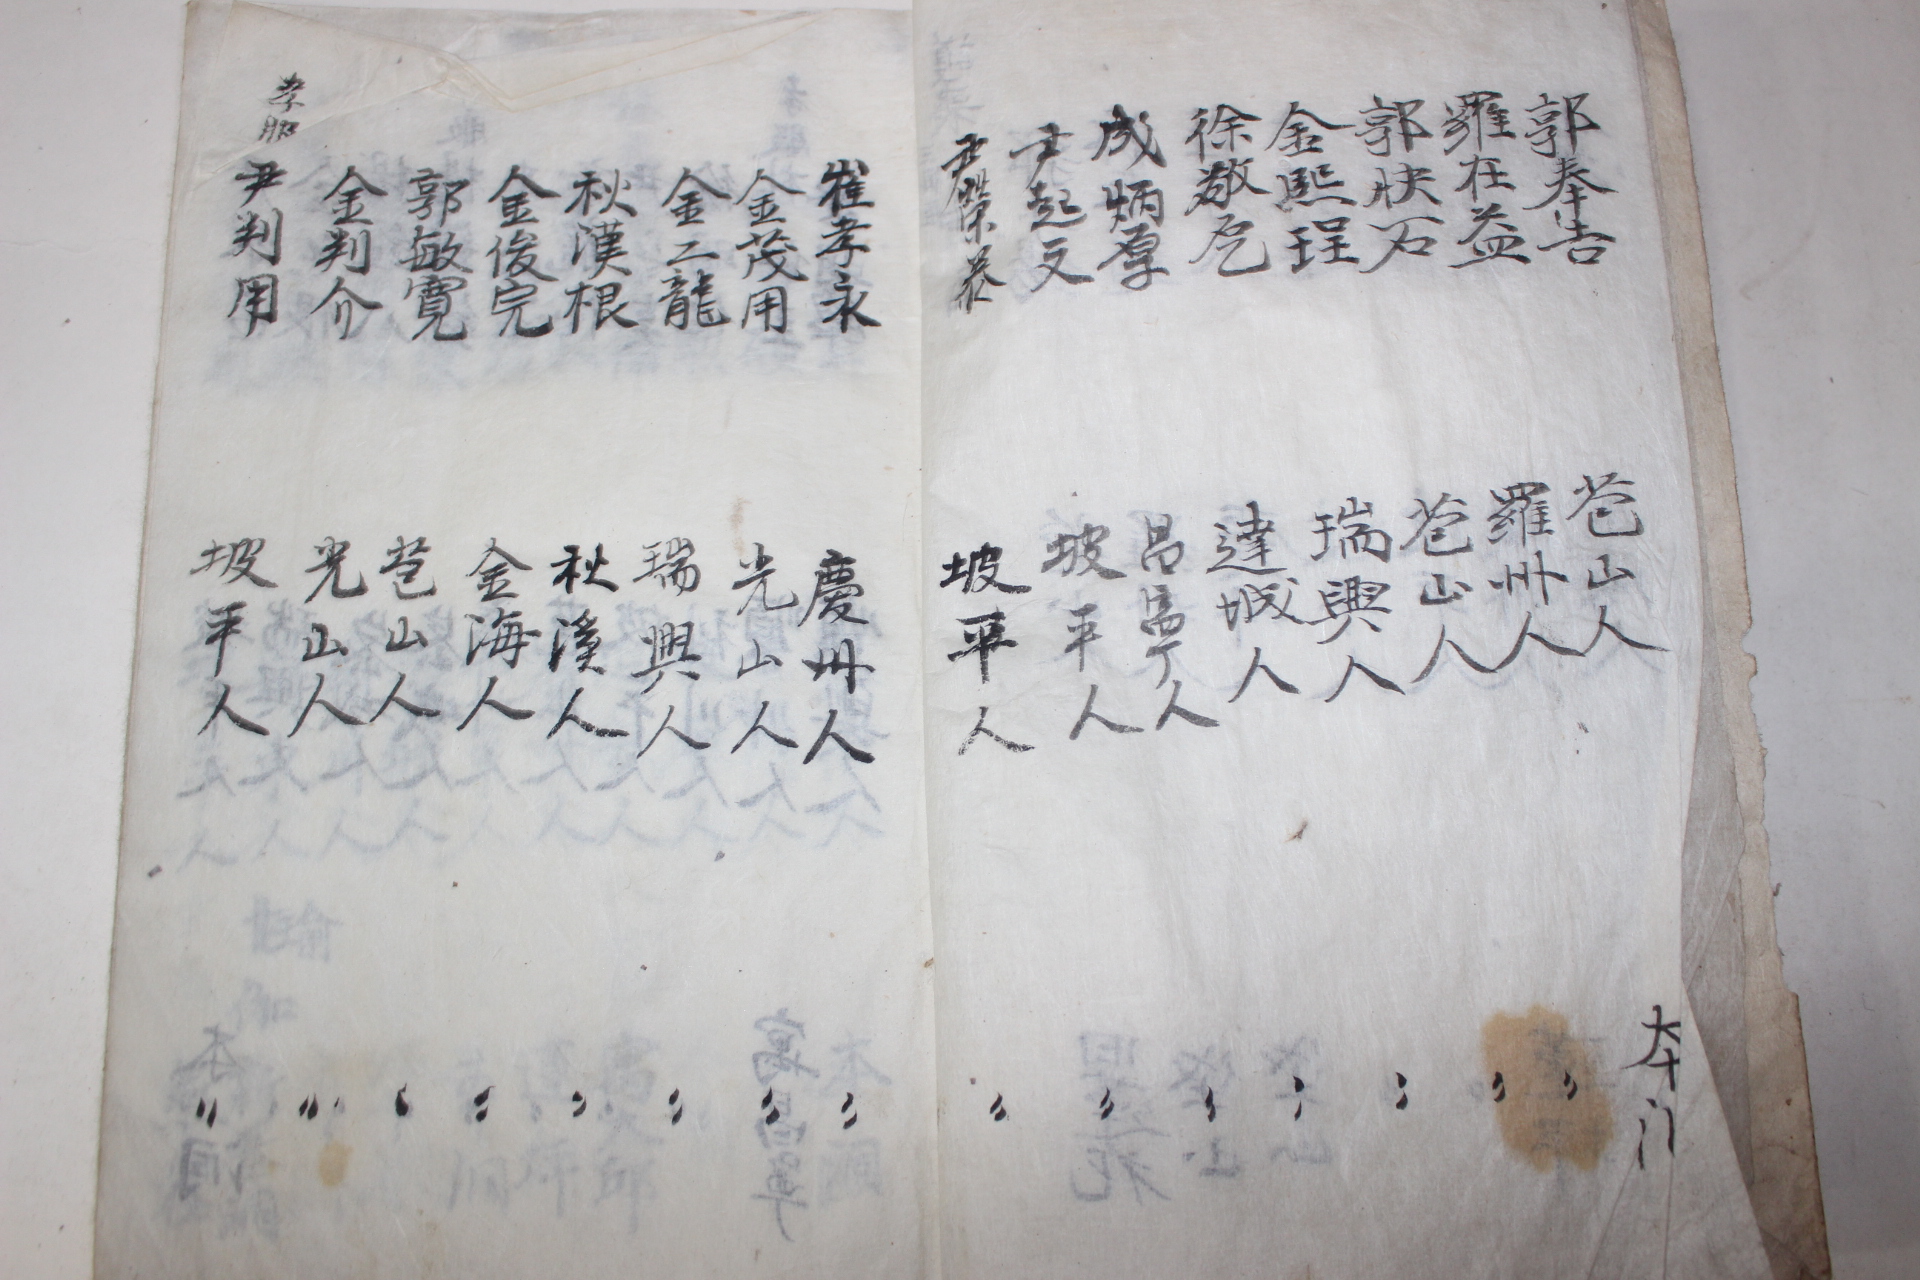 郭奉吉 苍山人 本洞
羅在益 羅州人 〃
郭快石 苍山人 〃
金熙珵 瑞興人 〃
徐敬 達城人 〃
成炳厚 昌寧人 〃
尹起文 坡平人 〃
尹榮恭 坡平人 〃
崔孝永 慶州人 〃
金茂用 光山人 〃
金二龍 瑞興人 〃
秋漢根 秋溪人 〃
金俊完 金海人 〃
郭敏寬 苍山人 〃
金判介 光山人 〃
孝服 尹判用 坡平人 〃